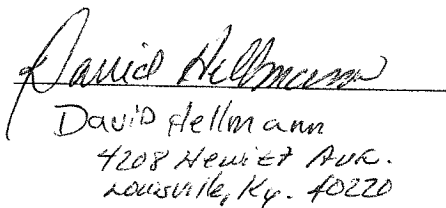 David Hellmann
David Hellmann
4208 Hewitt Ave.
Louisville, Ky. 40220